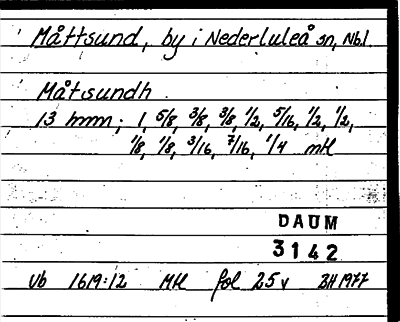 Måttsund, by i Nederluleå sn, Nb.l
Måtsundh
13 hmn; 1, 5/8, 3/8, 3/8, 1/2, 5/16, 1/2, 1/2,
1/8, 1/8, 3/16, 7/16, 1/4 mtl
DAUM
3142
Vb 1619:12 Mtl fol 25 v BH 1977